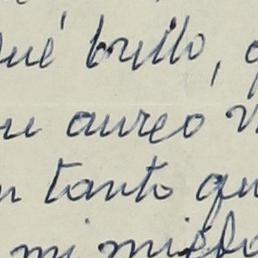 qué brillo,
su aureo
tanto qu
mi miedo